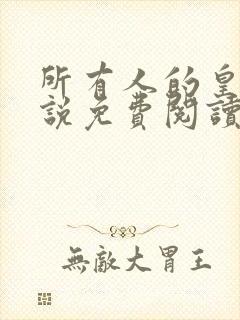 所有人的皇
説免費閱讀
無敵大胃王